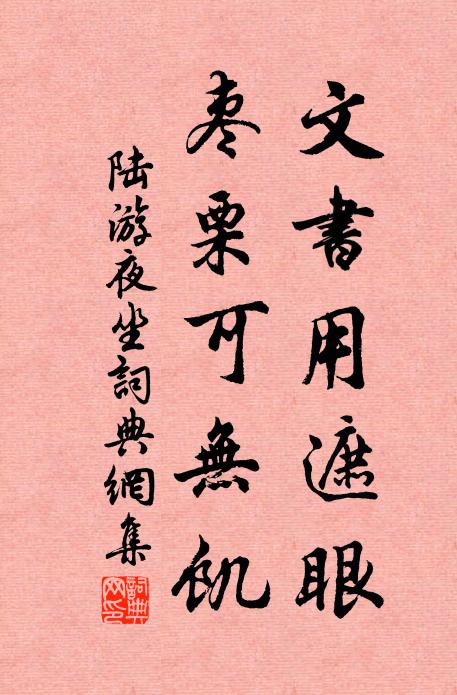 文書用遮眼
枣栗可無飢
陆游夜坐詞典網集
詞典网印